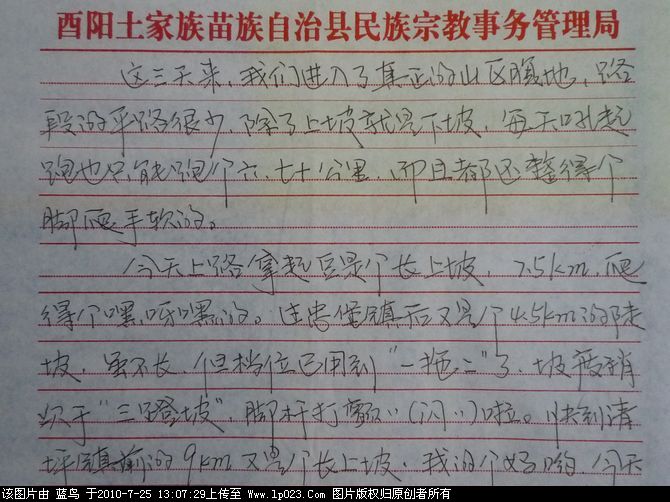 酉阳土家族苗族自治县民族宗教事务管理局
这三天来,我们进入了真正的山区腹地,路
段的平路很少,除了上坡就是下坡,每天吼起
跑也只能跑个六、七十公里,而且都还整得个
脚爬手软的。
今天上路拿起豆是个长上坡,7.5km,爬
得个嘿呀嘿的。过忠堡镇后又是个4.5km的陡
坡,虽不长,但档位已用到"一拖二"了,坡度稍
次于"三磴坡",脚杆打
(闪
)啦。快到清
坪镇前的9km又是个长上坡,我的个妈哟,今天
该图片由 蓝鸟 于2010-7-25 13:07:29上传至 Www.lp023.Com 图片版权归原创者所有